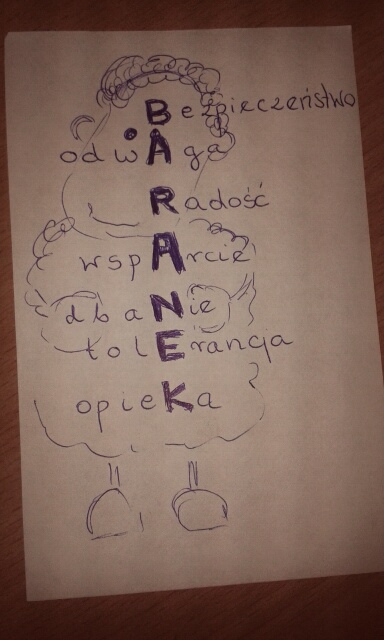 Bezpieczeństwo
odwAga
Radość
wspArcie
dbaNie
tolErancja
opieKa